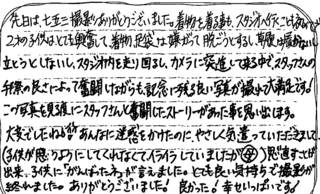 先日は、七五三撮影ありがとうございました。着物を着る事も、スタジオへ行くこともはじめて
2才の子供はとても興奮して、着物、足袋は嫌がって脱ごうとするし、草履は履かないし
立とうとしないし、スタジオ内を走り回るし、カメラに突進して来る中で、スタッフさんの
手際の良さによって奮闘しながらも記念に残る良い写真が撮れて大満足です。
この写真を見る度にスタッフさんと奮闘したストーリーがあった事を思い出すほろ。
大変でしたね あんなに迷惑をかけたのに、やさしく気遣っていただきまして
(子供が思うようにしてくれなくてイライラしていましたが)思い直すことが
出来、子供に「がんばったネ」が言えました。とても良い気持ちで撮影が
終われました。ありがとうございました。良かった!幸せいっぱいです。